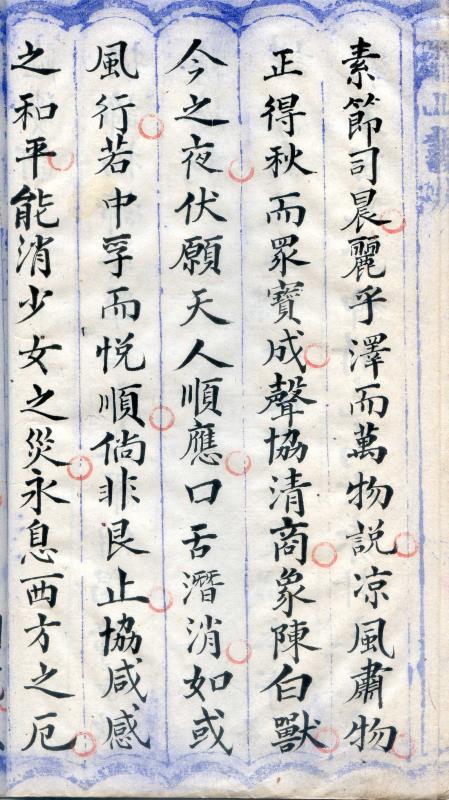 素節司晨麗乎澤而萬物説凉風肅物
正得秋而眾寶成聲協清商象陳白獸
今之夜伏願天人順應口舌潛消如或
風行若中孚而悅順倘非艮止協咸感
之和平能消少女之災永息西方之厄